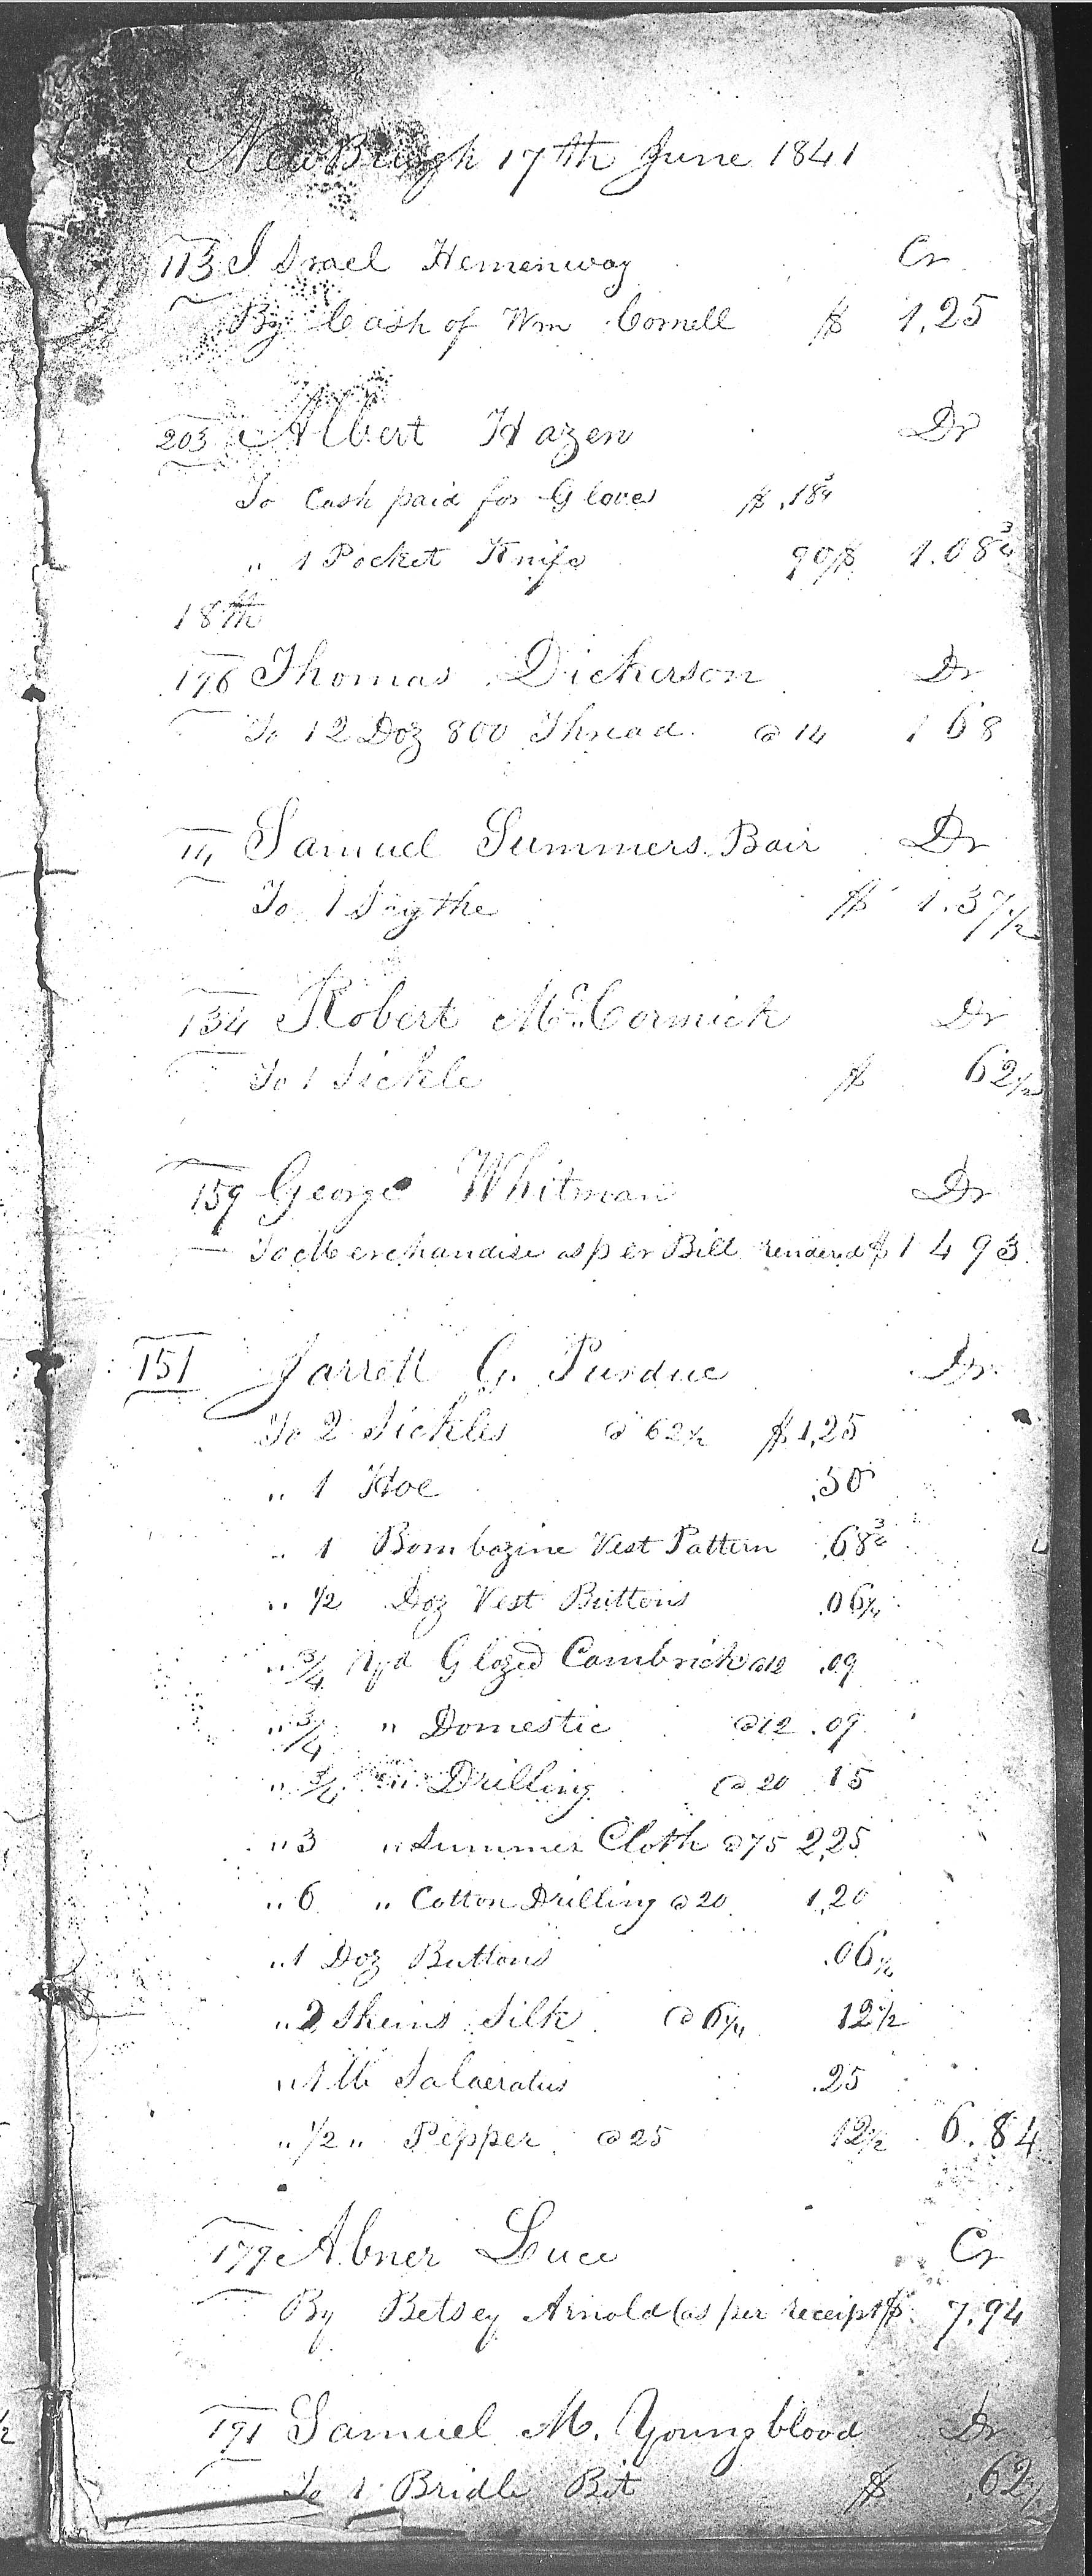 NewBurgh 17th June 1841
113 Israel Hemenway Cr
By Cash of Wm Cornell $ 1,25
203 Albert Hazen Dr
To Cash paid for Gloves $ .18¾
" 1 Pocket Knife 90 $ 1.08¾
18th
196 Thomas Dickerson Dr
To 12 Doz 800 Thread @ 14 1 68
Samuel Summers Bair Dr
To 1 Scythe $ 1.37½
134 Robert McCormick Dr
To 1 Sickle $ 62½
159 George Whitman Dr
To Merchandise as per Bill rendered $ 14 93
151 Jarrett G. Purdue Dr
To 2 Sickles @ 62½ $ 1,25
" 1 Hoe .50
" 1 Bombazine Vest Pattern .68¾
" ½ Doz Vest Buttons .06¼
" ¾ Yd Glazed Cambrick @12 .09
" ¾ " Domestic @12 .09
" ¾ " Drilling @ 20 15
" 3 " Summer Cloth @75 2,25
" 6 " Cotton Drilling @ 20 1,20
" 1 Doz Buttons .06¼
" 2 Skeins Silk @ 6¼ 12½
" 1 lb Salaeratus .25
" ½ " Pepper @ 25 12½ 6.84
177 Abner Luce Cr
By Betsey Arnold (as per receipt $ 7.94
191 Samuel M. Youngblood Dr
To 1 Bridle Bit $ .62½